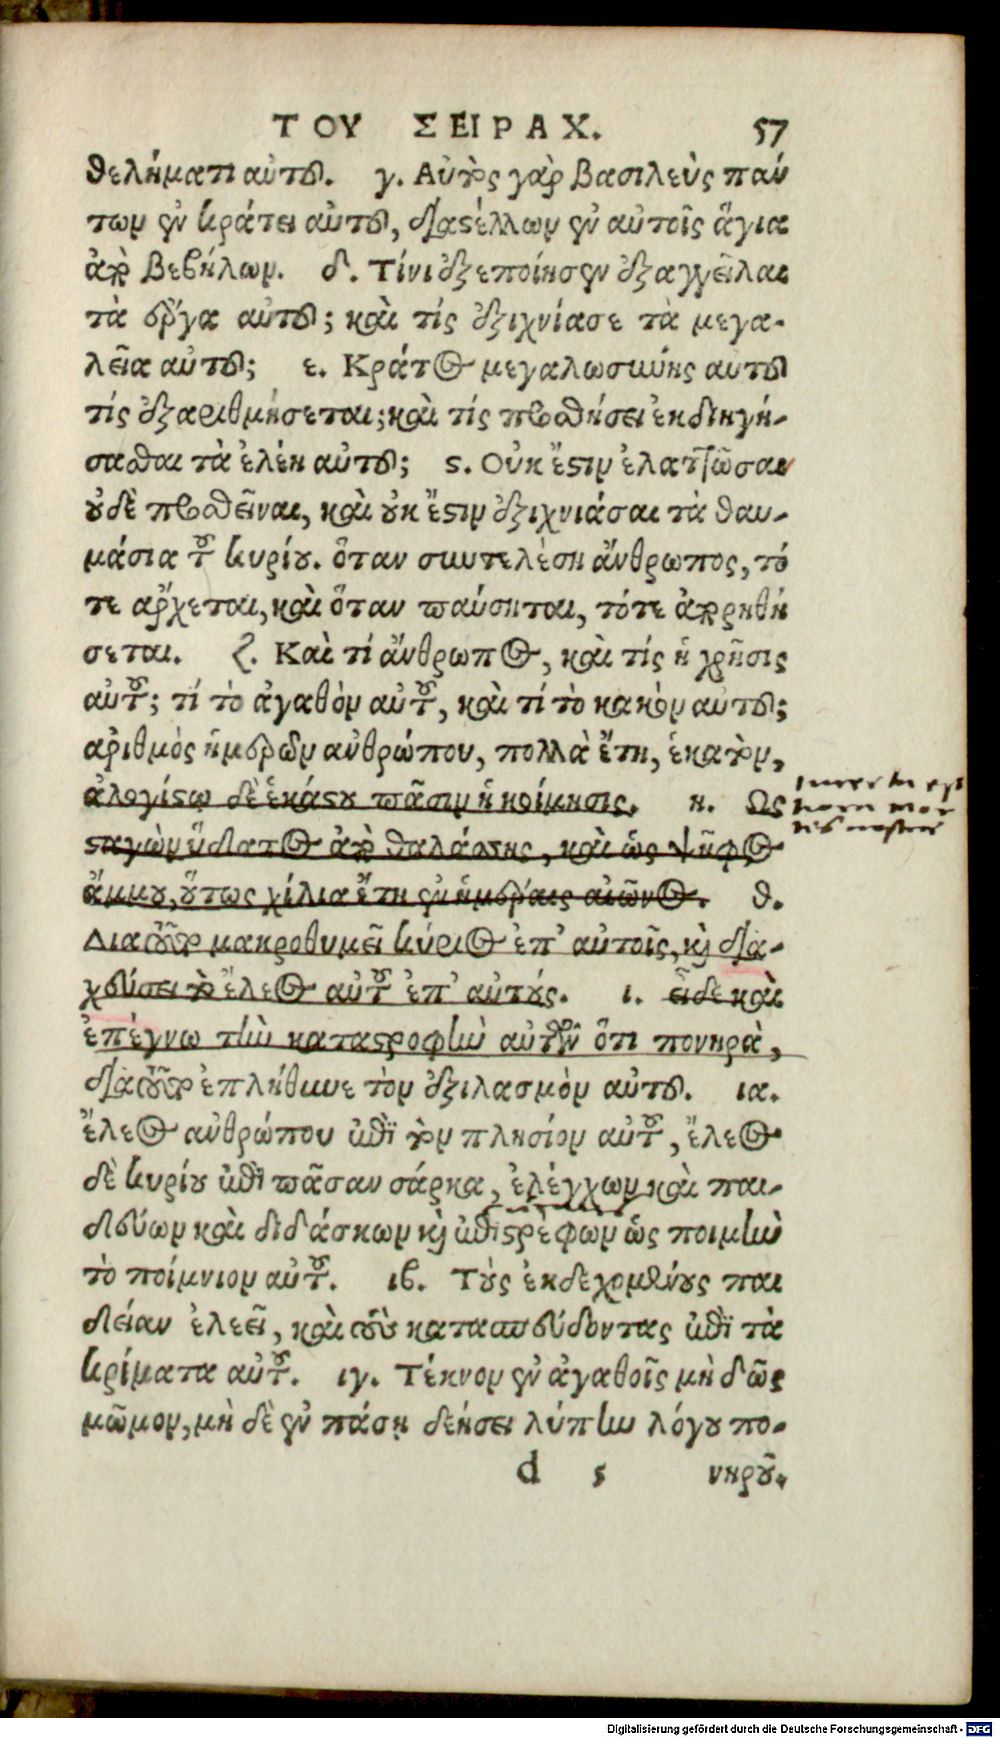 ΤΟΥ ΣΕΙΡΑΧ. 57
θελήματι αὐτοῦ. γ. Αὐτὸς γὰρ βασιλεὺς πάν
των ἐν κράτει αὐτοῦ, διαστέλλων ἐν αὐτοῖς ἅγια
ἀπὸ βεβήλων. δ. Τίνι ἐξεποίησεν ἐξαγγεῖλαι
τὰ ἔργα αὐτοῦ; καὶ τίς ἐξιχνίασε τὰ μεγα-
λεῖα αὐτοῦ; ε. Κράτος μεγαλωσύνης αυτοῦ
τίς ἐξαριθμήσεται; καὶ τίς προσθήσει ἐκδιηγή-
σασθαι τὰ ἐλέη αὐτοῦ; ϛ. Οὐκ ἔστιν ἐλαττῶσαι
οὐδὲ προσθεῖναι, καὶ οὐκ ἔστιν ἐξιχνιάσαι τὰ θαυ-
μάσια τοῦ κυρίου. ὅταν συντελέσῃ ἄνθρωπος, τό
τε ἄρχεται, καὶ ὅταν παύσηται, τότε ἀπορηθή
σεται. ζ. Καὶ τί ἄνθρωπος, καὶ τίς ἡ χρῆσις
αὐτοῦ; τί τὸ ἀγαθὸν αὐτοῦ, καὶ τί τὸ κακὸν αυτοῦ;
ἀριθμὸς ἡμερῶν ἀνθρώπου, πολλὰ ἔτη, ἑκατὸν,
ἀλογίστῳ δὲ ἑκάστου πᾶσιν ἡ κοίμησις. η. Ως
σταγὼν ὕδατος ἀπὸ θαλάσσης, καὶ ὡς ψῆφος
ἄμμου, οὕτως χίλια ἔτη ἐν ἡμέραις αἰῶνος. θ.
Διὰ τοῦτο μακροθυμεῖ κύριος ἐπ' αὐτοῖς, καὶ δια-
χεύσει τὸ ἔλεος αὐτοῦ ἐπ' αὐτούς. ι. εἶδε καὶ
ἐπέγνω τὴν καταστροφὴν αὐτῶν ὅτι πονηρὰ,
διὰ τοῦτο ἐπλήθυνε τὸν ἐξιλασμὸν αὐτοῦ. ια.
ἔλεος ἀνθρώπου ἐπὶ τὸν πλησίον αὐτοῦ, ἔλεος
δὲ κυρίου ἐπὶ πᾶσαν σάρκα, ἐλέγχων καὶ παι-
δεύων καὶ διδάσκων καὶ ἐπιστρέφων ὡς ποιμὴν
τὸ ποίμνιον αὐτοῦ. ιβ. Τοὺς ἐκδεχομένους παι
δείαν ἐλεεῖ, καὶ τοὺς κατασπεύδοντας ἐπὶ τὰ
κρίματα αὐτοῦ. ιγ. Τέκνον ἐν ἀγαθοῖς μὴ δῶς
μῶμον, μὴ δὲ ἐν πάσῃ δεήσει λύπην λόγου πο-
d 5 νηροῦ.
Digitalisierung gefördert durch die Deutsche Forschungsgemeinschaft - DFG